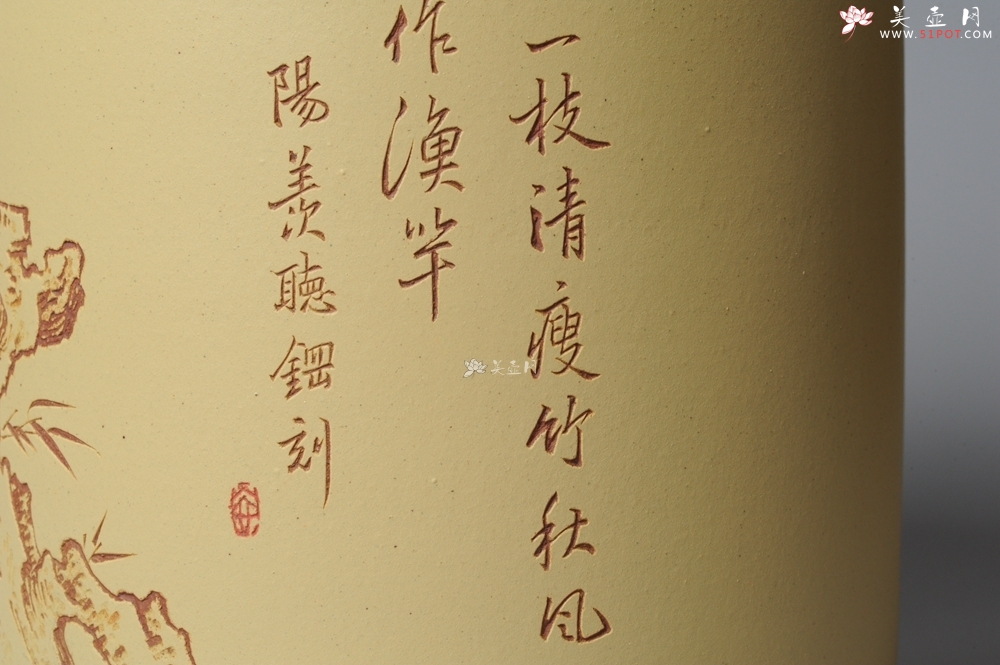 一枝清瘦竹秋风
作渔竿
陽羨聽鋼刻
美壶网
WWW.51POT.COM
美壶网